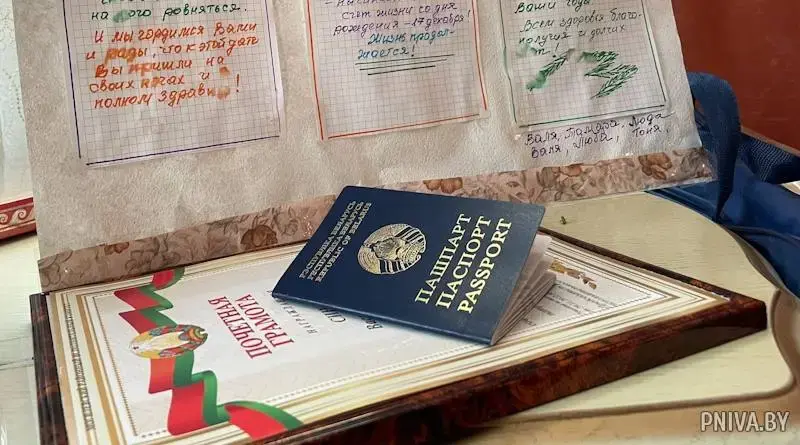 на кого ровняться.
И мы гордимся Вами
и рады, что к этой дате
Вы пришли на
своих ногах и
полном здравии!
счёт жизни со дня
рождения - 17 декабря!
Жизнь продол-
жается!
Ваши года
Всем здоровья благо-
получия и долгих
лет!
Валя, Тамара, Люда
Валя, Люба, Тоня,
РЭСПУБЛІКА БЕЛАРУСЬ
РЕСПУБЛИКА БЕЛАРУСЬ
REPUBLIC OF BELARUS
ПАШПАРТ
ПАСПОРТ
PASSPORT
ПОЧЕТНАЯ
ГРАМОТА
PNIVA.BY